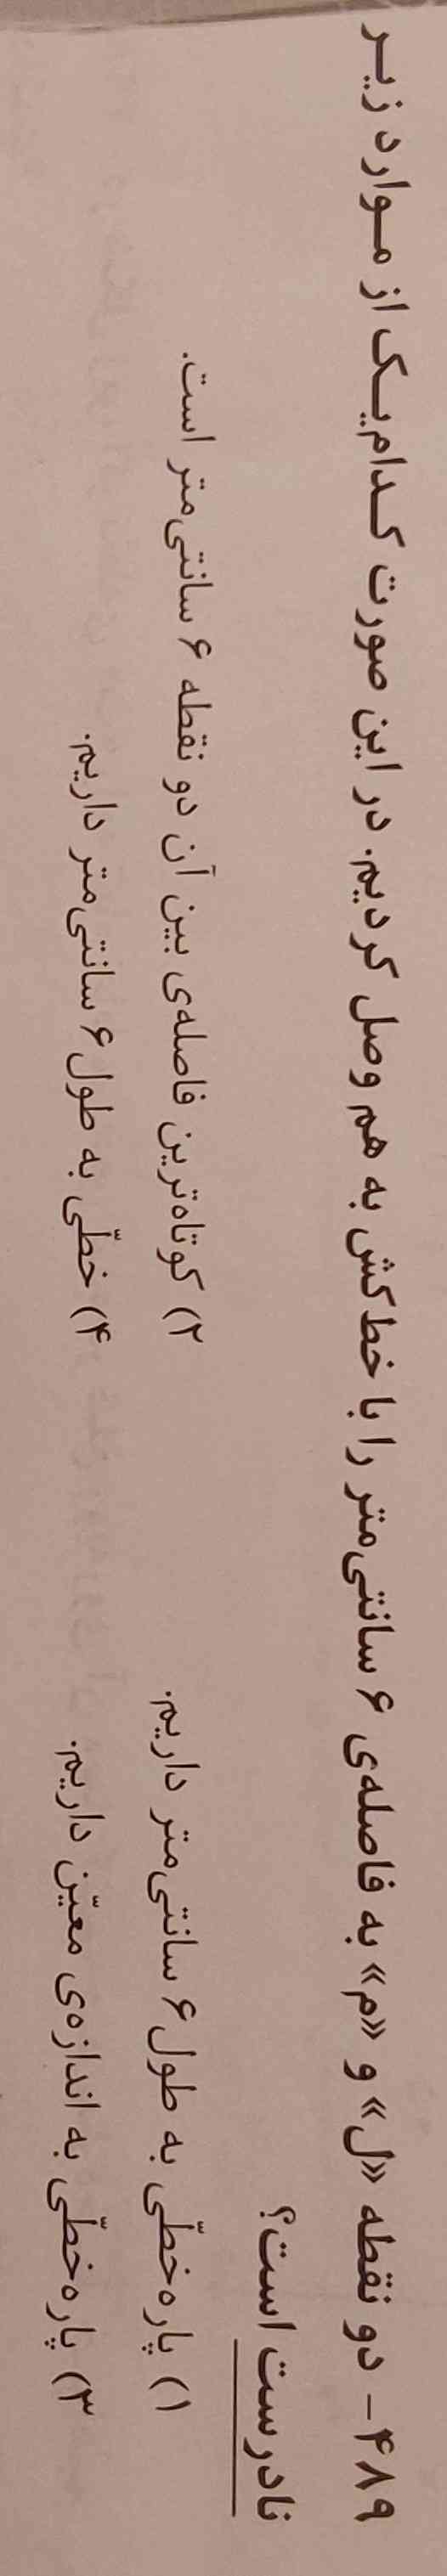 ۴۸۹- دو نقطه «ل» و «م» به فاصله‌ی ۶ سانتی‌متر را با خط‌کش به هم وصل کردیم. در این صورت کدام‌یک از موارد زیر
نادرست است؟
۱) پاره‌خطّی به طول ۶ سانتی‌متر داریم. ۲) کوتاه‌ترین فاصله‌ی بین آن دو نقطه ۶ سانتی‌متر است.
۳) پاره‌خطّی به اندازه‌ی معیّن داریم. ۴) خطّی به طول ۶ سانتی‌متر داریم.